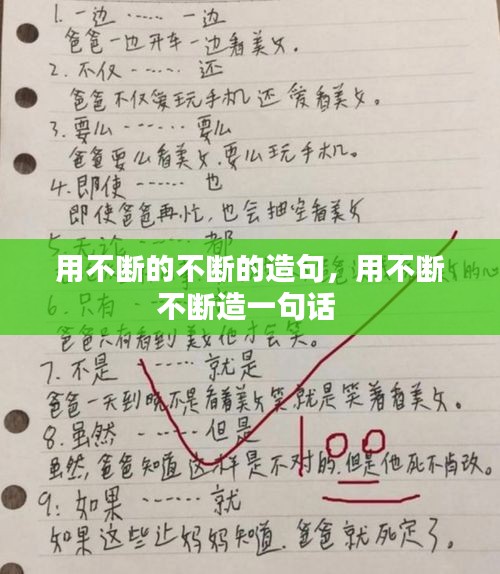 1. 一边 …… 一边
爸爸一边开车一边看美女。
2. 不仅 …… 还
爸爸不仅爱玩手机还爱看美女。
3. 要么 …… 要么
爸爸要么看美女,要么玩手机。
4. 即使 …… 也
即使爸爸再忙,也会抽空看美女
5. 无论 …… 都
用不断的不断的造句，用不断
不断造一句话
6. 只有
爸爸只有看到美女他才会笑。
7. 不是 …… 就是
爸爸一天到晚不是看着美女笑就是笑着看美女。
8. 虽然 …… 但是
虽然,爸爸知道这样是不对的,但是他死不肯改。
9: 如果 …… 就
如果这些让妈妈知道,爸爸就死定了。
100